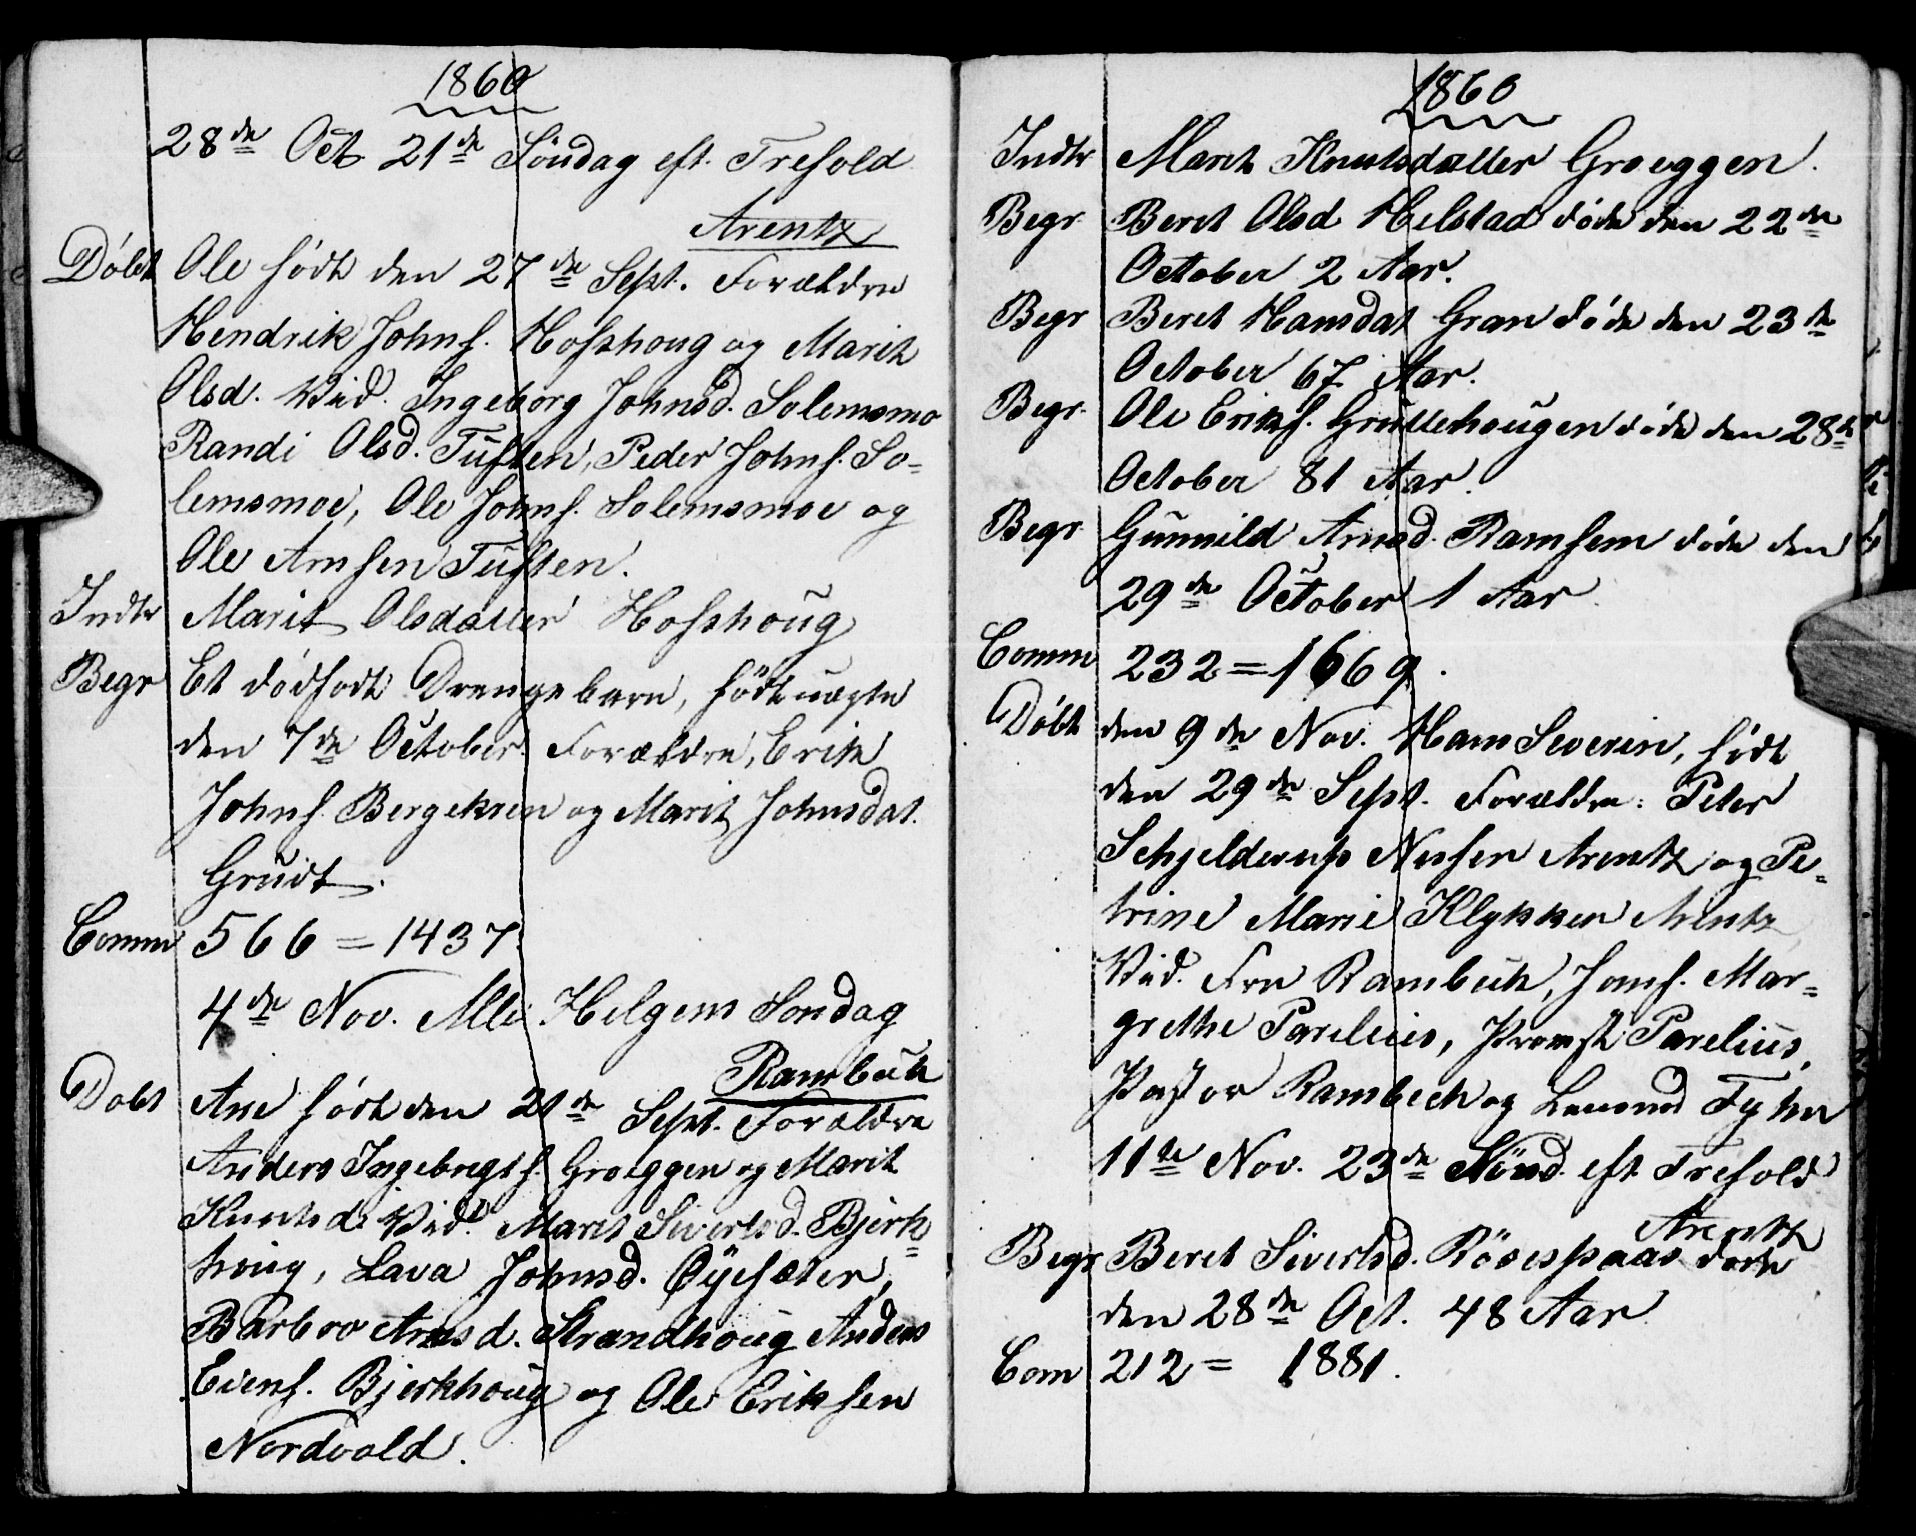 1860
28de Oct 21de Søndag eft. Trefold
Arentz
Døbt Ole født den 27de Sept. Forældre
Hendrik Johns. Hofshoug og Marit
Olsd. Vid. Ingeborg Johnsd. Solemsmo
Randi Olsd. Tuften, Peder Johns. So-
lemsmoe, Ole Johns. Solemsmoe og
Ole Arnsen Tuften.
Indtr Marit Olsdatter Hofshoug
Begr Et dødfødt Drengebarn, født uægte
den 7de October. Forældre, Erik
Johns. Bergeksen og Marit Johnsdat.
Grudt.
Comm 566 = 1437.
4de Nov. Alle Helgens Søndag
Rambech
Døbt Ane født den 21de Sept. Forældre
Anders Ingebregts. Groeggen og Marit
Knutsd. Vid. Marit Sivertsd. Bjerk-
houg, Lava Johnsd. Øyesæter,
Barbro Arnsd. Strandhoug Anders
Evens. Bjerkhoug og Ole Eriksen
Nordvold.
1860
Indtr Marit Knutsdatter Groeggen.
Begr. Beret Olsd Helstad døde den 22de
October 2 Aar.
Begr Beret Hansdat Gran døde den 23de
October 67 Aar.
Begr. Ole Eriks. Gruttehougen døde den 28de
October 81 Aar.
Begr Gunnild Arnsd. Ramsem døde den
29de October 1 Aar.
Comm 232 = 1669.
Døbt den 9de Nov. Hans Severin, født
den 29de Sept. Forældre: Peter
Schjelderup Arentz og Pe-
trine Marie Klykken Arentz
Vid. Fru Rambech, Jomf. Mar-
grethe Parelius, Provst Parelius,
Pastor Rambech og
11te Nov. 23de Sønd. eft Trefold
Arentz
Begr Beret Sivertsd. Røsespaas døde
den 28de Oct. 48 Aar
Com 212 = 1881.